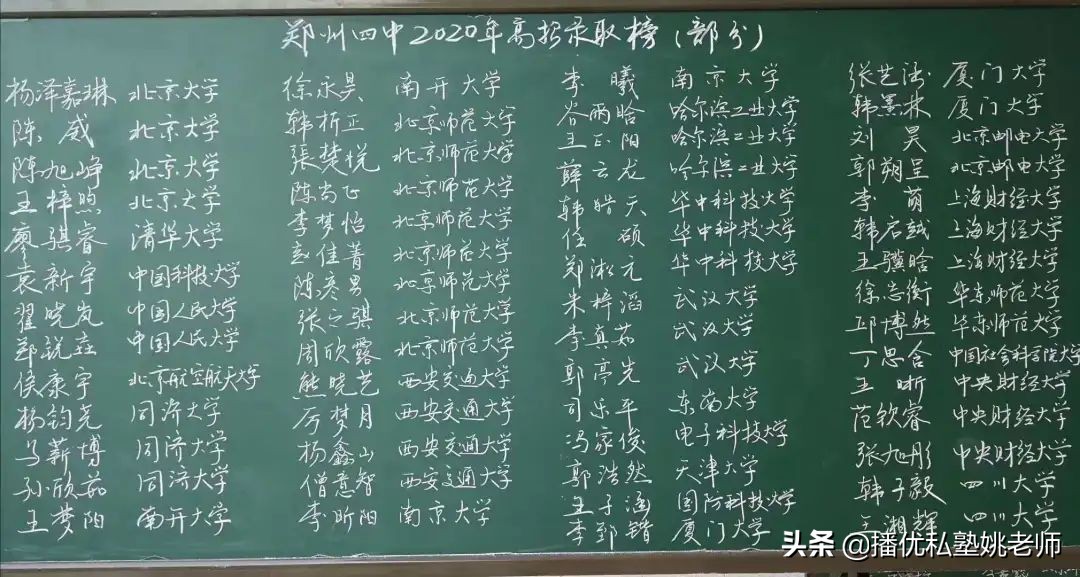 郑州四中2020年高招录取榜(部分)
杨泽嘉琳 北京大学
陈威 北京大学
陈旭峥 北京大学
王梓煦 北京大学
廖骐睿 清华大学
袁新宇 中国科技大学
翟晓岚 中国人民大学
郑锐垚 中国人民大学
侯康宇 北京航空航天大学
杨钧尧 同济大学
马薪博 同济大学
孙欣茹 同济大学
王梦阳 南开大学
徐永昊 南开大学
韩析正 北京师范大学
張楚悦 北京师范大学
陈尚飞 北京师范大学
李梦怡 北京师范大学
佳菁 北京师范大学
陈彦男 北京师范大学
张骐 北京师范大学
周欣露 北京师范大学
熊晓艺 西安交通大学
厉梦月 西安交通大学
杨鑫山 西安交通大学
僧意智 西安交通大学
李昕阳 南京大学
李曦 南京大学
谷雨晗 哈尔滨工业大学
王正阳 哈尔滨工业大学
薛云龙 哈尔滨工业大学
韩皓天 华中科技大学
任硕 华中科技大学
郑淞元 华中科技大学
朱梓滔 武汉大学
李真茹 武汉大学
郭亭先 武汉大学
司乐平 东南大学
冯家俊 电子科技大学
郭浩然 天津大学
王子涵 国防科技大学
李郅锴 厦门大学
张艺 厦门大学
韩熹林 厦门大学
刘昊 北京邮电大学
郭朔呈 北京邮电大学
李萌 上海财经大学
韩启越 上海财经大学
王骥晗 上海财经大学
徐志衡 华东师范大学
邱博然 华东师范大学
丁思含 中国社会科学院大学
王昕 中央财经大学
范钦睿 中央财经大学
张旭彤 中央财经大学
韩子毅 四川大学
湘辉 四川大学
头条 @播优私塾姚老师